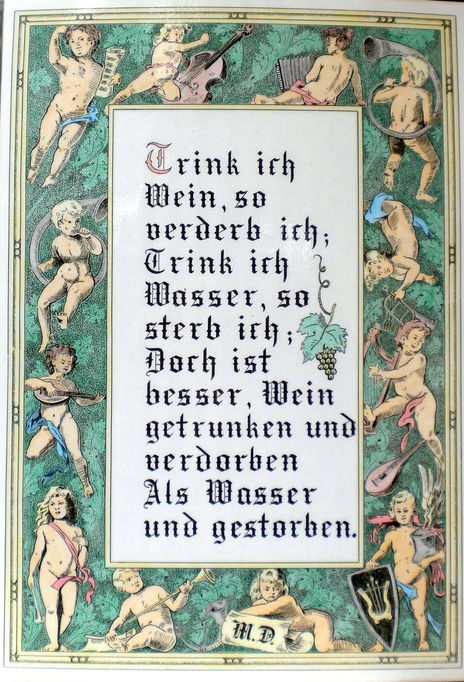 Trink ich
Wein, so
verderb ich;
Trink ich
Wasser, so
sterb ich;
Doch ist
besser, Wein
getrunken und
verdorben
Als Wasser
und gestorben.
M. D.